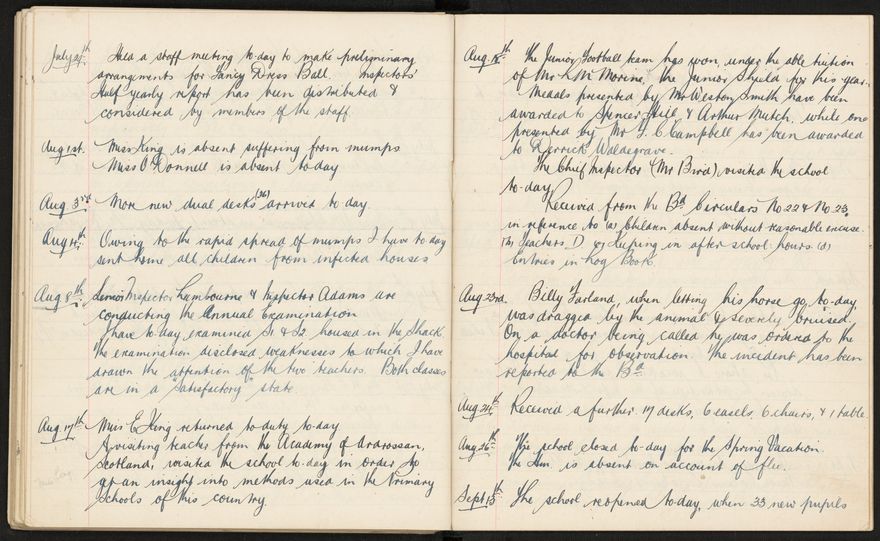 July 27th Held a staff meeting to-day to make preliminary
arrangements for Fancy Dress Ball. Inspectors'
Half yearly report has been distributed &
considered by members of the staff.
Aug 1st. Miss King is absent suffering from mumps
Miss O'Donnell is absent to-day
Aug 3rd More new dual desks (26) arrived to-day.
Aug 4th Owing to the rapid spread of mumps I have to-day
sent home all children from infected houses
Aug 8th Senior Inspector Lambourne & Inspector Adams are
conducting the Annual Examination
I have to-day examined S1 & S2 housed in the Shack.
The examination disclosed weaknesses to which I have
drawn the attention of the two teachers. Both classes
are in a "Satisfactory" state.
Aug 17th Miss E King returned to duty to-day
A visiting teacher from the Academy of Ardrossan,
Scotland, visited the school to-day in order to
get an insight into methods used in the Primary
Schools of this country.
Aug 18th The Junior Football team has won, under the able tuition
of Mr K. M. Morine, the Junior Shield for this year.
Medals presented by Mr Weston Smith have been
awarded to Spencer Hill, & Arthur Mutch, while one
presented by Mr J. C. Campbell has been awarded
to Derrick Waldegrave.
The Chief Inspector (Mr Bird) visited the school
to-day
Received from the Bd Circulars No 22 & No 23,
in reference to (a) Children absent without reasonable excuse.
(b) Teachers D (c) Keeping in after school hours. (d)
Entries in Log Book.
Aug 23rd. Billy Farland, when letting his horse go, to-day,
was dragged by the animal & severely bruised.
On a doctor being called he was ordered to the
hospital for observation. The incident has been
reported to the Bd
Aug 24th Received a further 19 desks, 6 easels, 6 chairs, & 1 table
Aug 26th The school closed to-day for the Spring Vacation.
The Hm. is absent on account of flu.
Sept 13th The school reopened to-day, when 23 new pupils